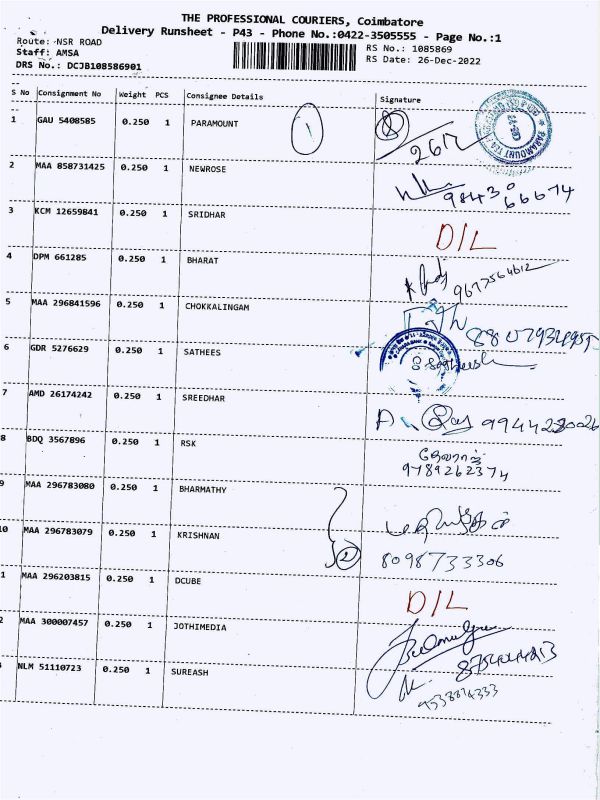 THE PROFESSIONAL COURIERS, Coimbatore
Delivery Runsheet - P43 - Phone No.:0422-3505555 - Page No.:1
Route: NSR ROAD
Staff: AMSA
DRS No.: DCJB108586901
RS No.: 1085869
RS Date: 26-Dec-2022
S No Consignment No Weight PCS Consignee Details Signature
1 GAU 5408585 0.250 1 PARAMOUNT 1
2 MAA 858731425 0.250 1 NEWROSE 98430 66674
3 KCM 12659841 0.250 1 SRIDHAR D/L
4 DPM 661285 0.250 1 BHARAT
5 MAA 296841596 0.250 1 CHOKKALINGAM
6 GDR 5276629 0.250 1 SATHEES
7 AMD 26174242 0.250 1 SREEDHAR
8 BDQ 3567896 0.250 1 RSK 9789262374
9 MAA 296783080 0.250 1 BHARMATHY
10 MAA 296783079 0.250 1 KRISHNAN 2 8098733306
1 MAA 296203815 0.250 1 DCUBE D/L
2 MAA 300007457 0.250 1 JOTHIMEDIA
NLM 51110723 0.250 1 SUREASH